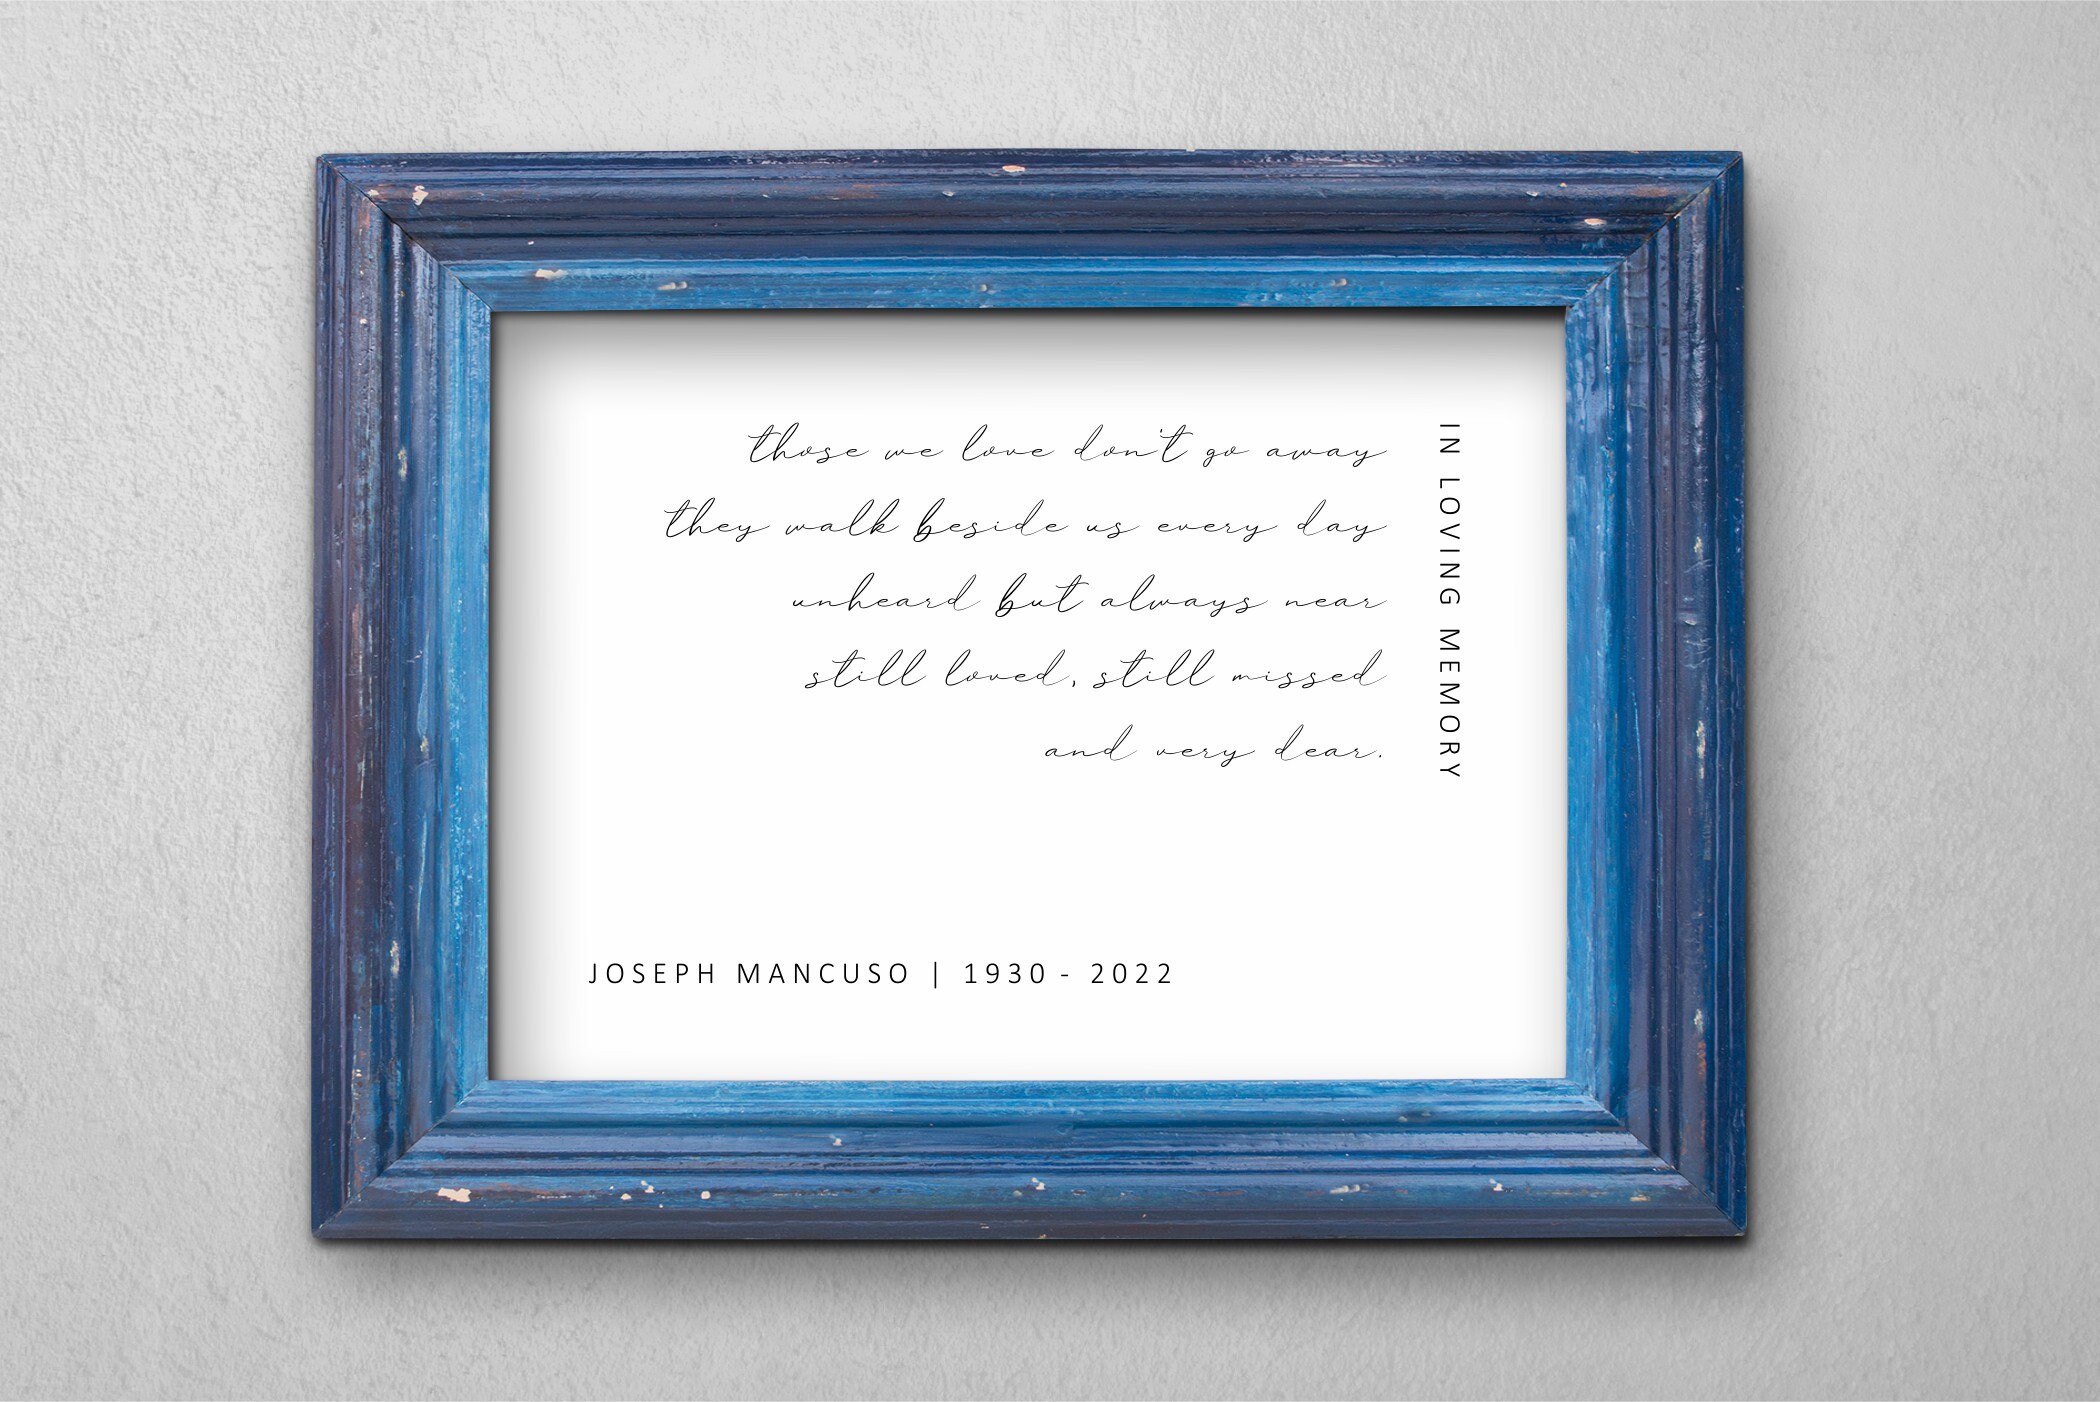 those we love don't go away
they walk beside us every day
unheard but always near
still loved, still missed
and very dear.
IN LOVING MEMORY
JOSEPH MANCUSO | 1930 - 2022